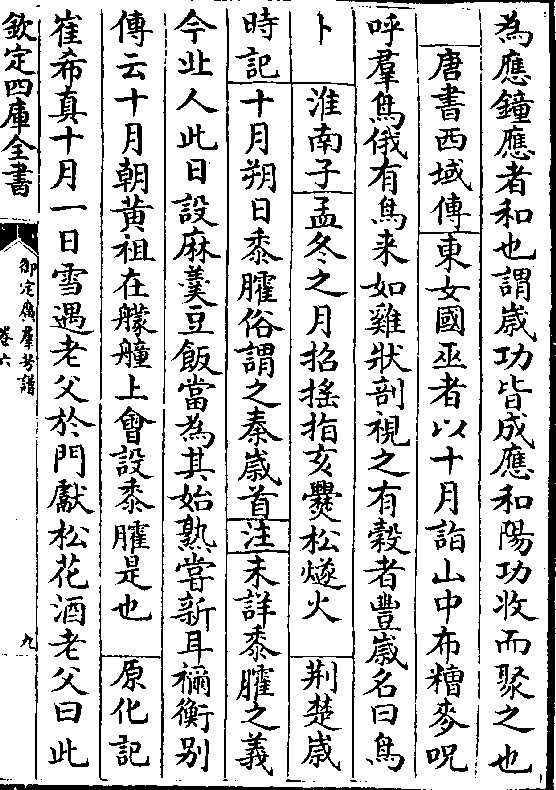 為應鐘應者和也謂歲功皆成應和陽功收而聚之也
唐書西域傳東女國巫者以十月詣山中布糟麥呪
呼羣鳥俄有鳥来如雞狀剖視之有穀者豐歲名曰鳥
卜 淮南子孟冬之月招搖指亥爨松燧火 荆楚歲
時記十月朔日黍臛俗謂之秦歲首注未詳黍臛之義
今北人此日設麻羹豆飯當為其始熟嘗新耳禰衡别
傳云十月朝黃祖在艨艟上會設黍臛是也 原化記
崔希真十月一日雪遇老父於門獻松花酒老父曰此
欽定四庫全書
御定廣羣芳譜
卷六
九